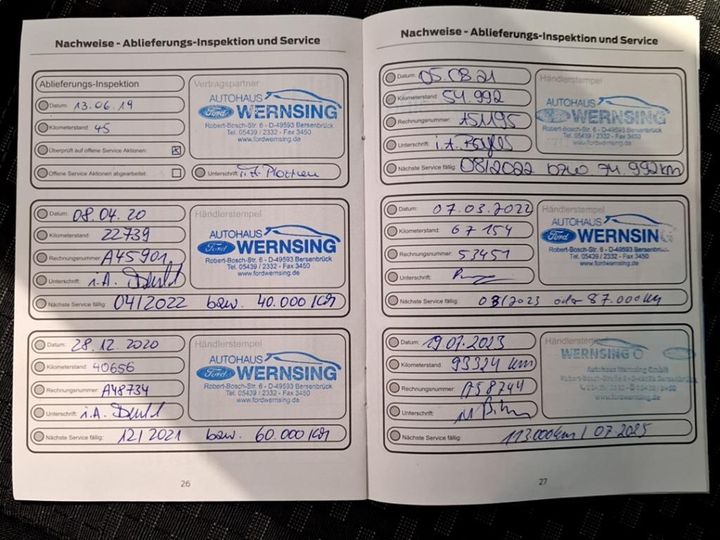 Nachweise - Ablieferungs-Inspektion und Service
Ablieferungs-Inspektion
Datum: 13.06.19
Kilometerstand: 45
Überprüft auf offene Service Aktionen:
Offene Service Aktionen abgearbeitet:
Vertragspartner
AUTOHAUS
Ford WERNSING
Robert-Bosch-Str. 6 - D-49593 Bersenbrück
Tel. 05439 / 2332 - Fax 3450
www.fordwernsing.de
Unterschrift: i.A.
Datum: 08.04.20
Kilometerstand: 22739
Rechnungsnummer: A45901
Unterschrift: i.A.
Händlerstempel
AUTOHAUS
Ford WERNSING
Robert-Bosch-Str. 6 - D-49593 Bersenbrück
Tel. 05439 / 2332 - Fax 3450
www.fordwernsing.de
Nächste Service fällig: 04/2022 bzw. 40.000 km
Datum: 28.12.2020
Kilometerstand: 40656
Rechnungsnummer: A48734
Unterschrift: i.A.
Händlerstempel
AUTOHAUS
Ford WERNSING
Robert-Bosch-Str. 6 - D-49593 Bersenbrück
Tel. 05439 / 2332 - Fax 3450
www.fordwernsing.de
Nächste Service fällig: 12/2021 bzw. 60.000 km
26
Nachweise - Ablieferungs-Inspektion und Service
Datum: 05.08.21
Kilometerstand: 54.992
Rechnungsnummer: 151195
Unterschrift: i.A.
Händlerstempel
AUTOHAUS
Ford WERNSING
Robert-Bosch-Str. 6 - D-49593 Bersenbrück
Tel. 05439 / 2332 - Fax 3450
www.fordwernsing.de
Nächste Service fällig: 08/2022 bzw 74.992 km
Datum: 07.03.2022
Kilometerstand: 67154
Rechnungsnummer: 53451
Unterschrift:
Händlerstempel
AUTOHAUS
Ford WERNSING
Robert-Bosch-Str. 6 - D-49593 Bersenbrück
Tel. 05439 / 2332 - Fax 3450
www.fordwernsing.de
Nächste Service fällig: 03/2023 oder 87.000 km
Datum: 19.07.2023
Kilometerstand: 93324 km
Rechnungsnummer:
Unterschrift:
Händlerstempel
WERNSING
Autohaus Wernsing GmbH
Robert-Bosch-Straße 6, D-49593 Bersenbrück
Nächste Service fällig: 113.000km / 07.2025
27